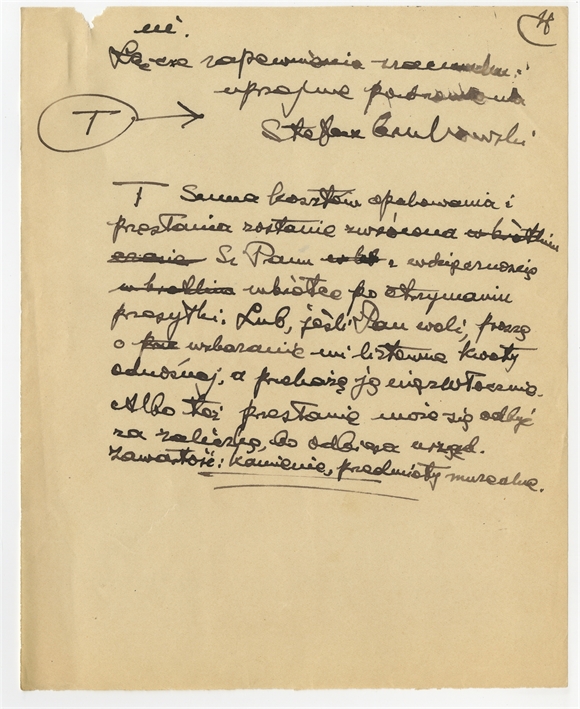 4
mi.
Łączę zapewnienia szacunku i
uprzejme pozdrowienia
Stefan
T →
T Suma kosztów opakowania i
przesłania zostanie zwrócona w krótkim
czasie Sz Panu z wdzięcznością
w krótkim wkrótce po otrzymaniu
przesyłki. Lub, jeśli Pan woli, proszę
o wskazanie mi listowne kwoty
odnośnej, a przekażę ją niezwłocznie.
Albo też przesłanie może się odbyć
za zaliczką, bo odbiera urząd.
Zawartość: kamienie, przedmioty muzealne.